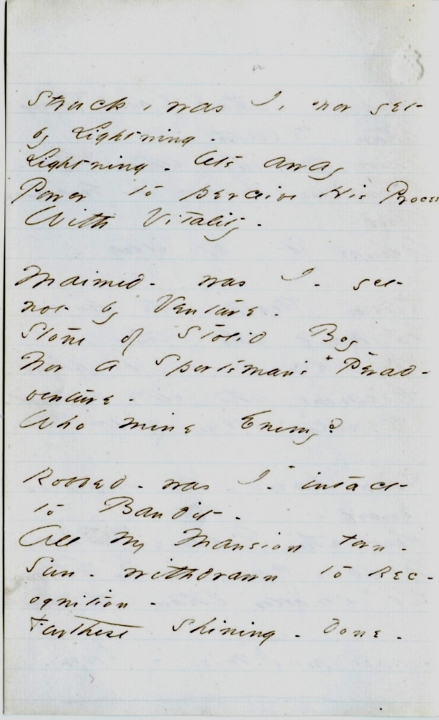 Struck, was I, nor yet
by Lightning -
Lightning - lets away
Power to perceive His Process
With Vitality -
Maimed - was I - yet
not by Venture -
Stone of Stolid Boy -
Nor a Sportsman's Perad-
venture -
Who mine Enemy?
Robbed - was I - intact
to Bandit -
All my Mansion torn -
Sun - withdrawn to Rec-
ognition -
Furthest Shining - done -